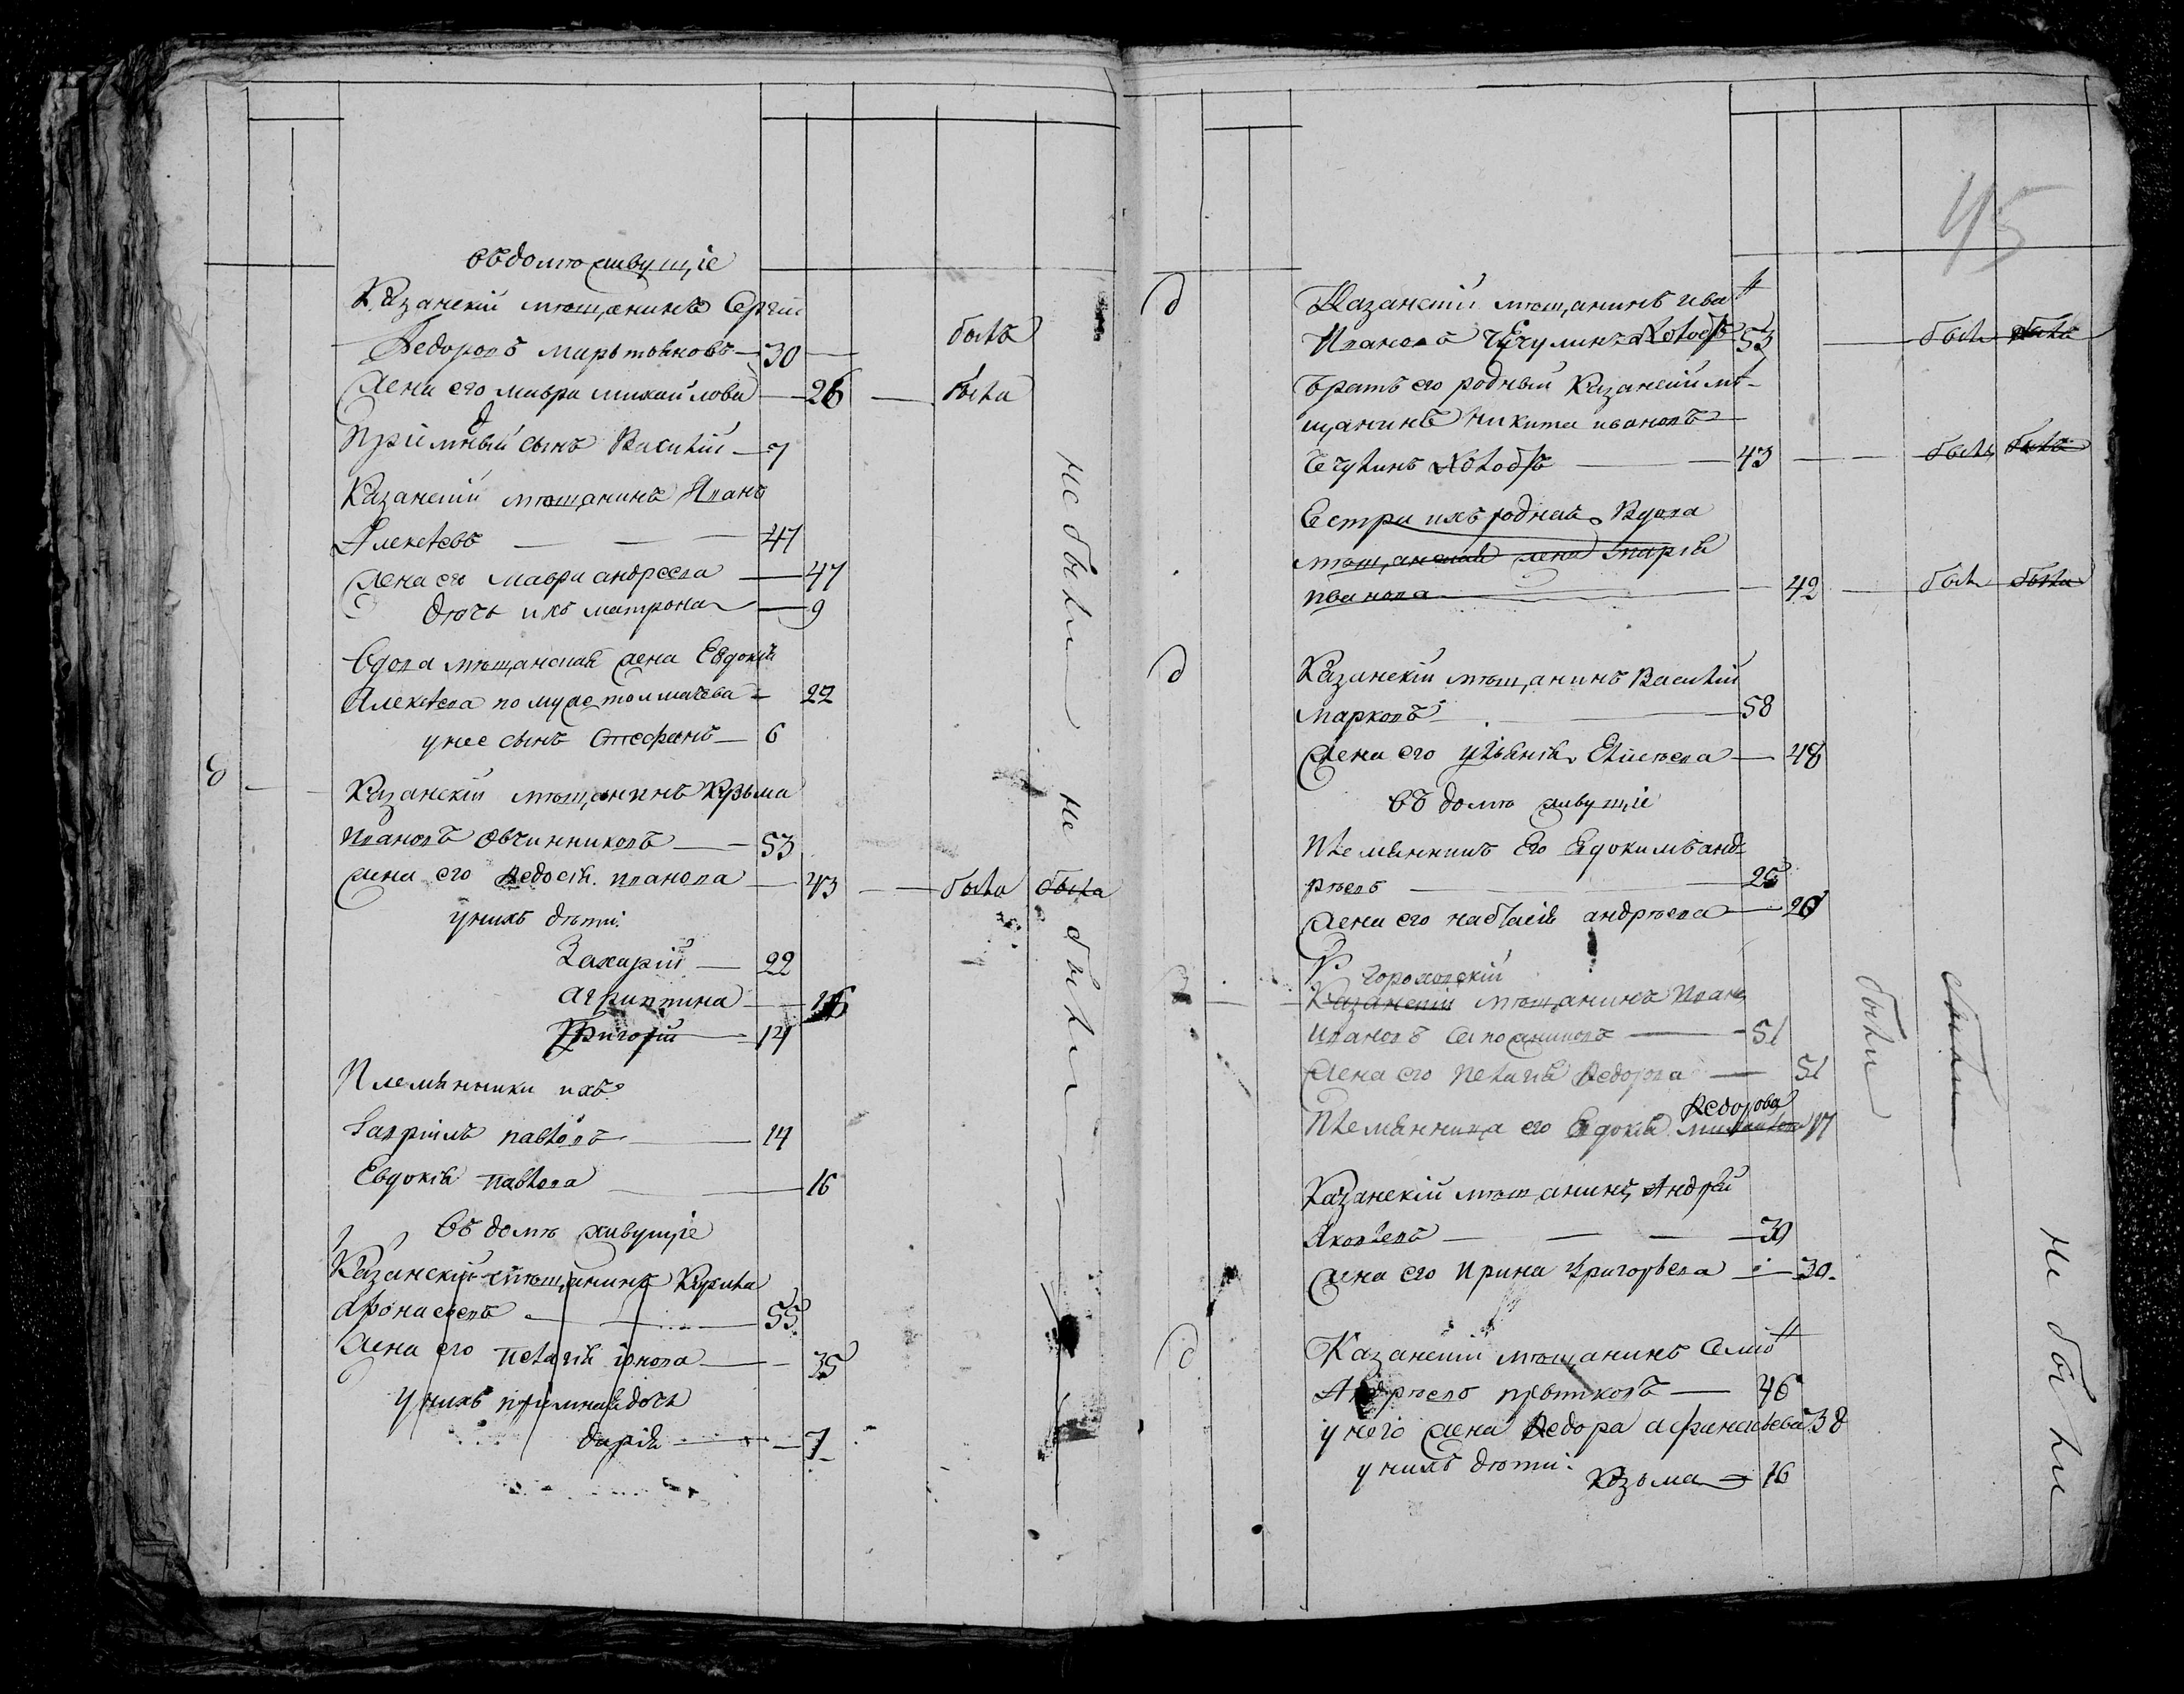 въ домѣ живущіе
Казанскій мѣщанинъ Сергій
Ѳедоровъ Мартьяновъ — 30 — былъ
Жена его Мавра Михайлова — 26 — была
Пріемный сынъ Василій — 7
Казанскій мѣщанинъ Иванъ
Алексѣевъ — 47
Жена его Мавра Андреева — 47
Дочь ихъ Матрона — 9
не были
Вдова мѣщанская жена Евдокія
Алексѣева по мужѣ Толмачева — 22
у нее сынъ Стефанъ — 6
Казанскій мѣщанинъ Кузьма
Ивановъ Овчинниковъ — 53
Жена его Ѳедосія Иванова — 43 — была была
у нихъ дѣти:
Захарій — 22
Агриппина — 16
Григорій — 14
Племянники ихъ
Гавріилъ Павловъ — 14
Евдокія Павлова — 16
не были
Въ домѣ живущіе
Казанскій мѣщанинъ Кирила
Афонасьевъ — 55
Жена его Пелагія — 35
У нихъ пріемная дочь
Дарія — 7
45
Казанскій мѣщанинъ Иванъ
Ивановъ Чечулинъ — 53 — былъ былъ
Братъ его родный Казанскій мѣ-
щанинъ Никита Ивановъ
Чечулинъ — 43 — былъ былъ
Сестра ихъ родная Вдова
мѣщанская жена Марія
Иванова — 42 — была была
Казанскій мѣщанинъ Василій
Марковъ — 58
Жена его Ульянія Елисѣева — 48
Въ домѣ живущіе
Племянникъ его Евдокимъ Анд-
рѣевъ — 25
Жена его Настасія Андрѣева — 20
Гороховскій
Казанскій мѣщанинъ Иванъ
Ивановъ Сапожниковъ — 51
Жена его Пелагія Ѳедорова — 51
Ѳедорова
Племянница его Евдокія — 17
были
были
Казанскій мѣщанинъ Андрей
Яковлевъ — 30
Жена его Ирина Григорьева — 30
Казанскій мѣщанинъ Семіонъ
Андрѣевъ — 46
у него жена Ѳедора Афанасьева 38
у нихъ дѣти:
Козьма — 16
не были